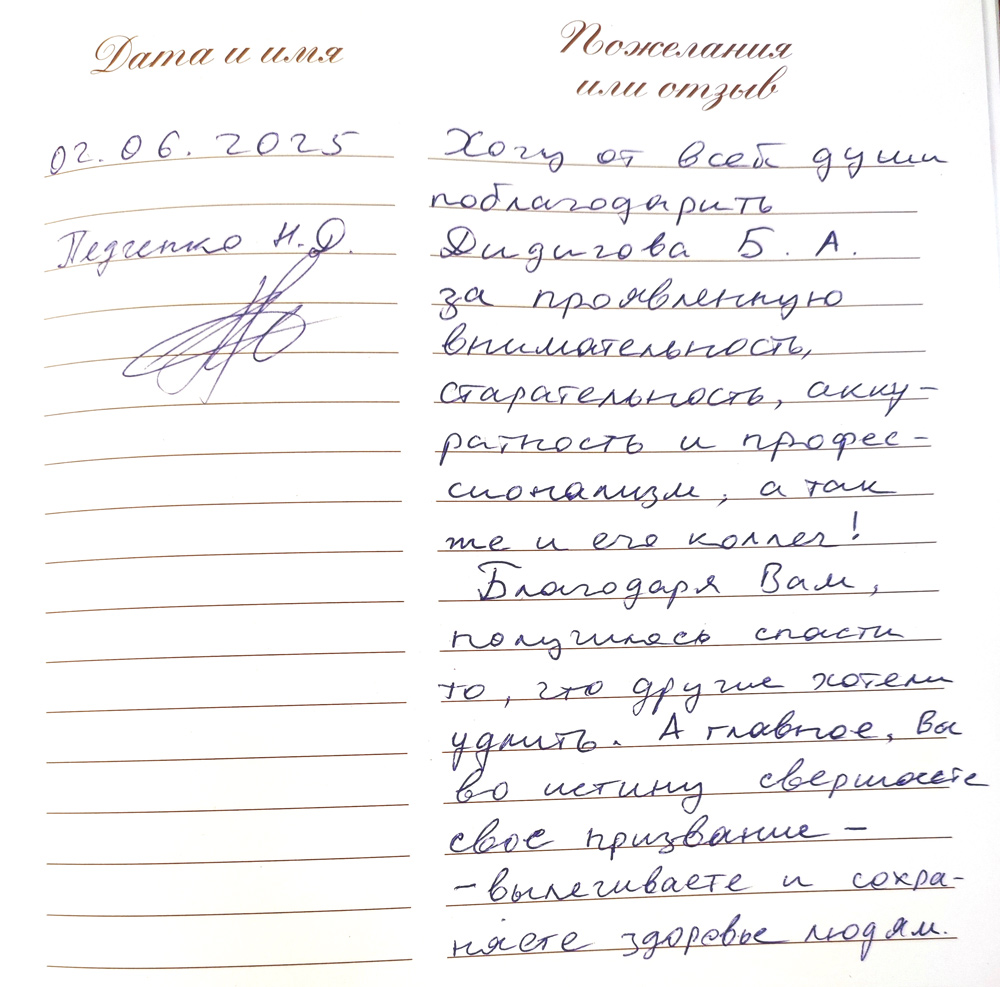 Дата и имя
Пожелания
или отзыв
02.06.2025
Педченко Н.Д.
Хочу от всей души
поблагодарить
Дидигова Б. А.
за проявленную
внимательность,
старательность, акку-
ратность и профес-
сионализм, а так
же и его коллег!
Благодаря Вам,
получилось спасти
то, что другие хотели
удалить. А главное, Вы
во истину свершаете
свое призвание -
- вылечиваете и сохра-
няете здоровье людям.